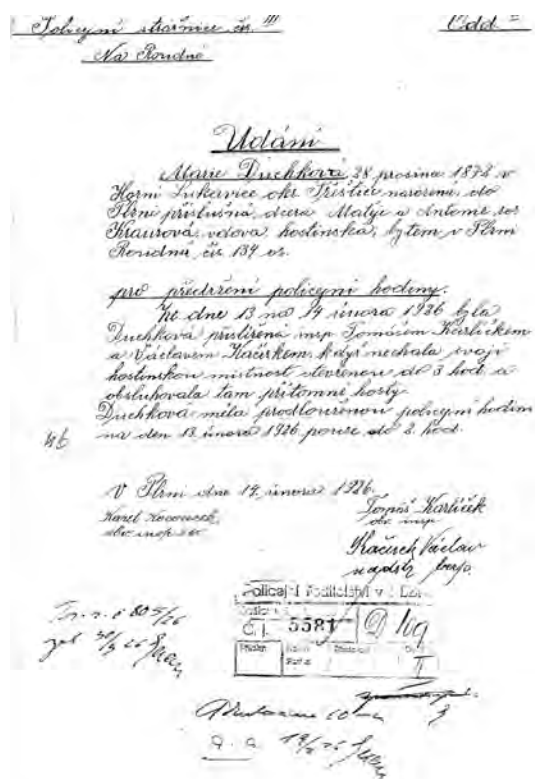 Policejní strážnice čís. III
Odd
Na Roudné
Udání
Marie Duchková, 28 prosince 1872 v
Horní Lukavice okr. Přeštice narozená, do
Plzně příslušná, dcera Matěje a Antonie roz.
Krausová, vdova hostinská, bytem v Plzni
Roudná čís. 134 os.
pro předržení policejní hodiny.
Ze dne 13 na 14 února 1926 byla
Duchková přistižena insp. Tomášem Karlíčkem
a Václavem Kačírkem, když nechala svoji
hostinskou místnost otevřenou do 3 hod. a
obsluhovala tam přítomné hosty.
Duchková měla prodlouženou policejní hodinu
na den 13. února 1926 pouze do 2. hod.
V Plzni dne 14. února 1926.
Karel
Tomáš Karlíček
obv. insp.
Václav
Policejní ředitelství v
Č. j. 5581
D 109
II
a. a.